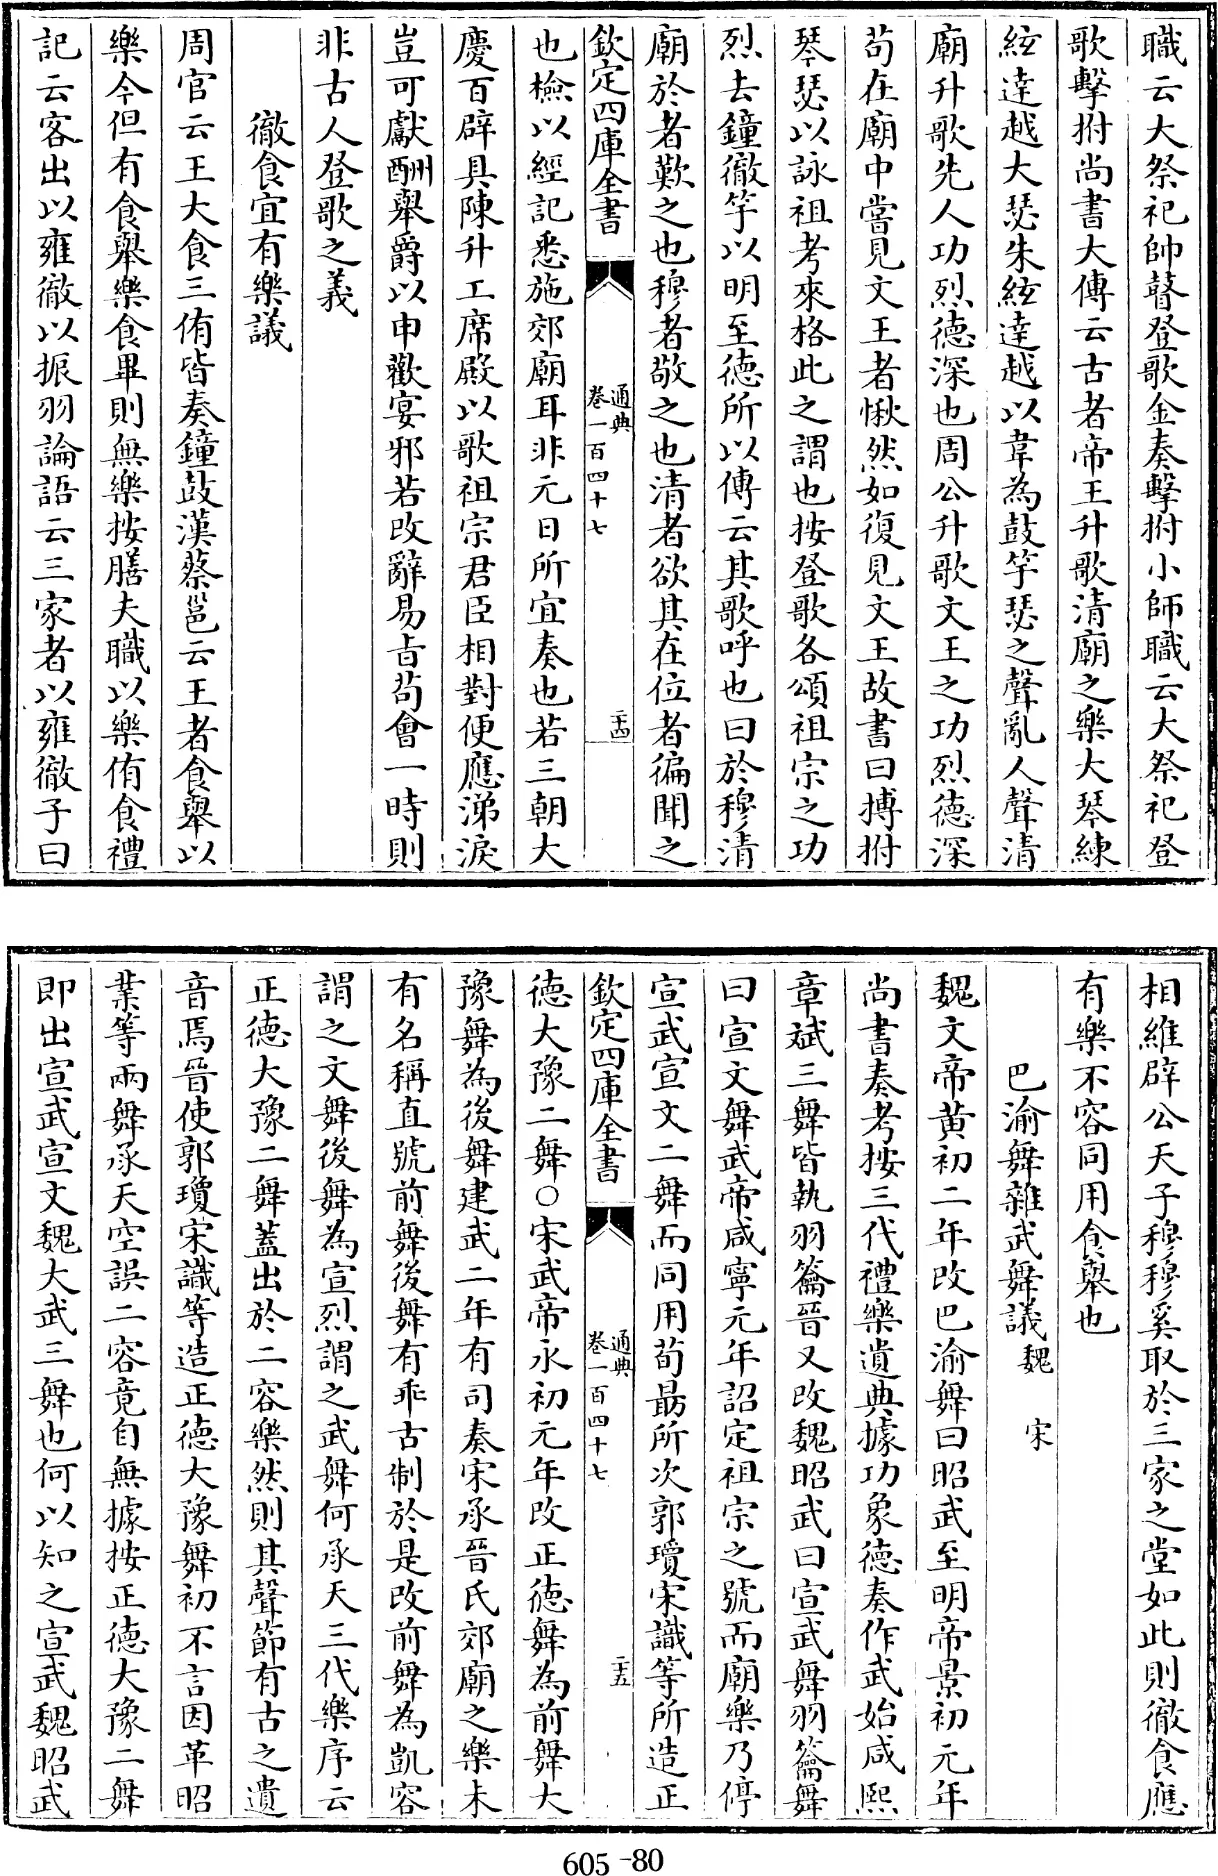 職云大祭祀帥瞽登歌金奏擊拊小師職云大祭祀登
歌擊拊尚書大傳云古者帝王升歌清廟之樂大琴練
絃達越大瑟朱絃達越以韋為鼓竽瑟之聲亂人聲清
廟升歌先人功烈德深也周公升歌文王之功烈德深
苟在廟中嘗見文王者愀然如復見文王故書曰搏拊
琴瑟以詠祖考來格此之謂也按登歌各頌祖宗之功
烈去鐘徹竽以明至德所以傳云其歌呼也曰於穆清
廟於者歎之也穆者敬之也清者欲其在位者徧聞之
欽定四庫全書 通典 卷一百四十七 二十四
也檢以經記悉施郊廟耳非元日所宜奏也若三朝大
慶百辟具陳升工席殿以歌祖宗君臣相對便應涕淚
豈可獻酬舉爵以申歡宴邪若改辭易旨苟會一時則
非古人登歌之義
徹食宜有樂議
周官云王大食三侑皆奏鐘鼓漢蔡邕云王者食舉以
樂今但有食舉樂食畢則無樂按膳夫職以樂侑食禮
記云客出以雍徹以振羽論語云三家者以雍徹子曰
相維辟公天子穆穆奚取於三家之堂如此則徹食應
有樂不容同用食舉也
巴渝舞雜武舞議 魏 宋
魏文帝黄初二年改巴渝舞曰昭武至明帝景初元年
尚書奏考按三代禮樂遺典據功象德奏作武始咸熙
章斌三舞皆執羽籥晉又改魏昭武曰宣武舞羽籥舞
曰宣文舞武帝咸寧元年詔定祖宗之號而廟樂乃停
宣武宣文二舞而同用荀勗所次郭瓊宋識等所造正
欽定四庫全書 通典 卷一百四十七 二十五
德大豫二舞○宋武帝永初元年改正德舞為前舞大
豫舞為後舞建武二年有司奏宋承晉氏郊廟之樂未
有名稱直號前舞後舞有乖古制於是改前舞為凱容
謂之文舞後舞為宣烈謂之武舞何承天三代樂序云
正德大豫二舞蓋出於二容樂然則其聲節有古之遺
音焉晉使郭瓊宋識等造正德大豫舞初不言因革昭
業等兩舞承天空誤二容竟自無據按正德大豫二舞
即出宣武宣文魏大武三舞也何以知之宣武魏昭武
605-80